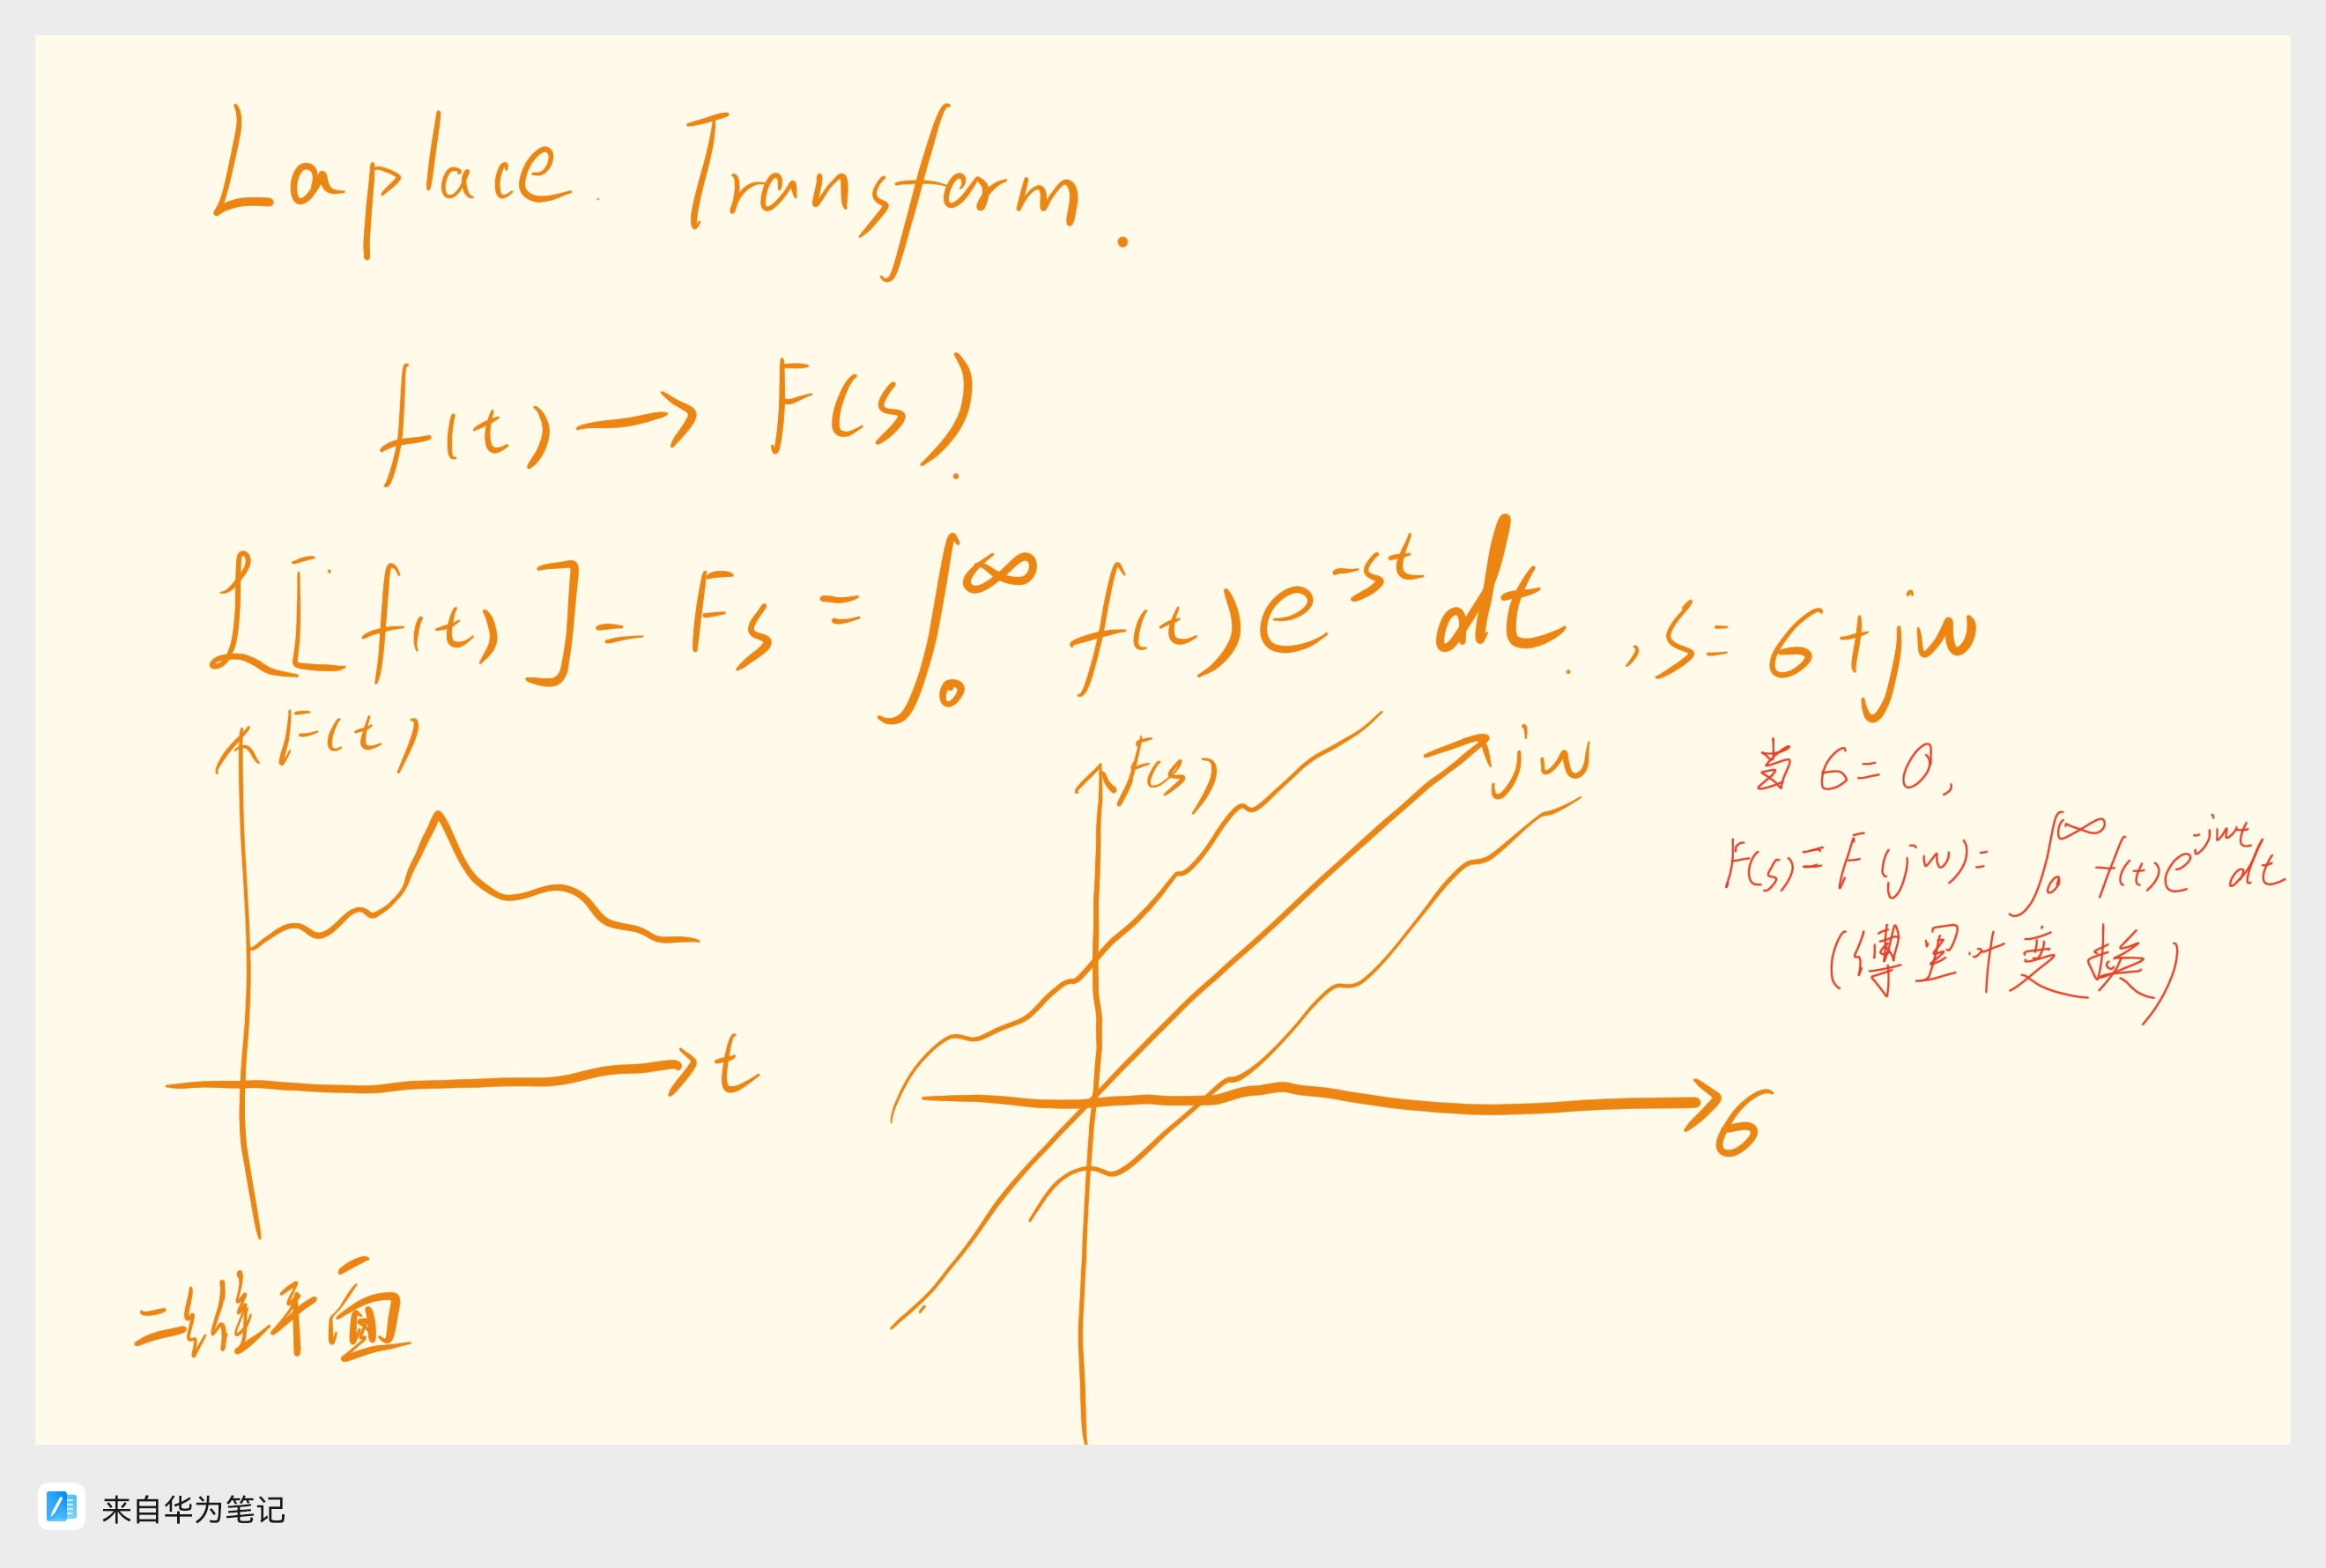 Laplace. Transform.
f(t) → F(s).
ℒ[f(t)] = Fs = ∫₀^∞ f(t)e^{-st}dt. , s = 6+jw
F(t)
t
二维平面
F(s)
jw
6
当6=0,
F(s)=F(jw)=∫₀^∞ f(t)e^{-jwt}dt
(傅里叶变换)
来自华为笔记